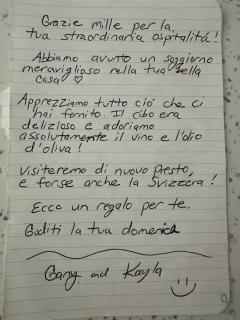 Grazie mille per la
tua straordinaria ospitalitá!
Abbiamo avunto un soggiorno
meraviglioso nella tua bella
casa ♡
Apprezziamo tutto ció che ci
hai fornito. Il cibo era
delizioso e adoriamo
assolutamente il vino e l'olio
d'oliva!
Visiteremo di nuovo presto,
e forse anche la Svizzera!
Ecco un regalo per te.
Goditi la tua domenica
Gary and Kayla